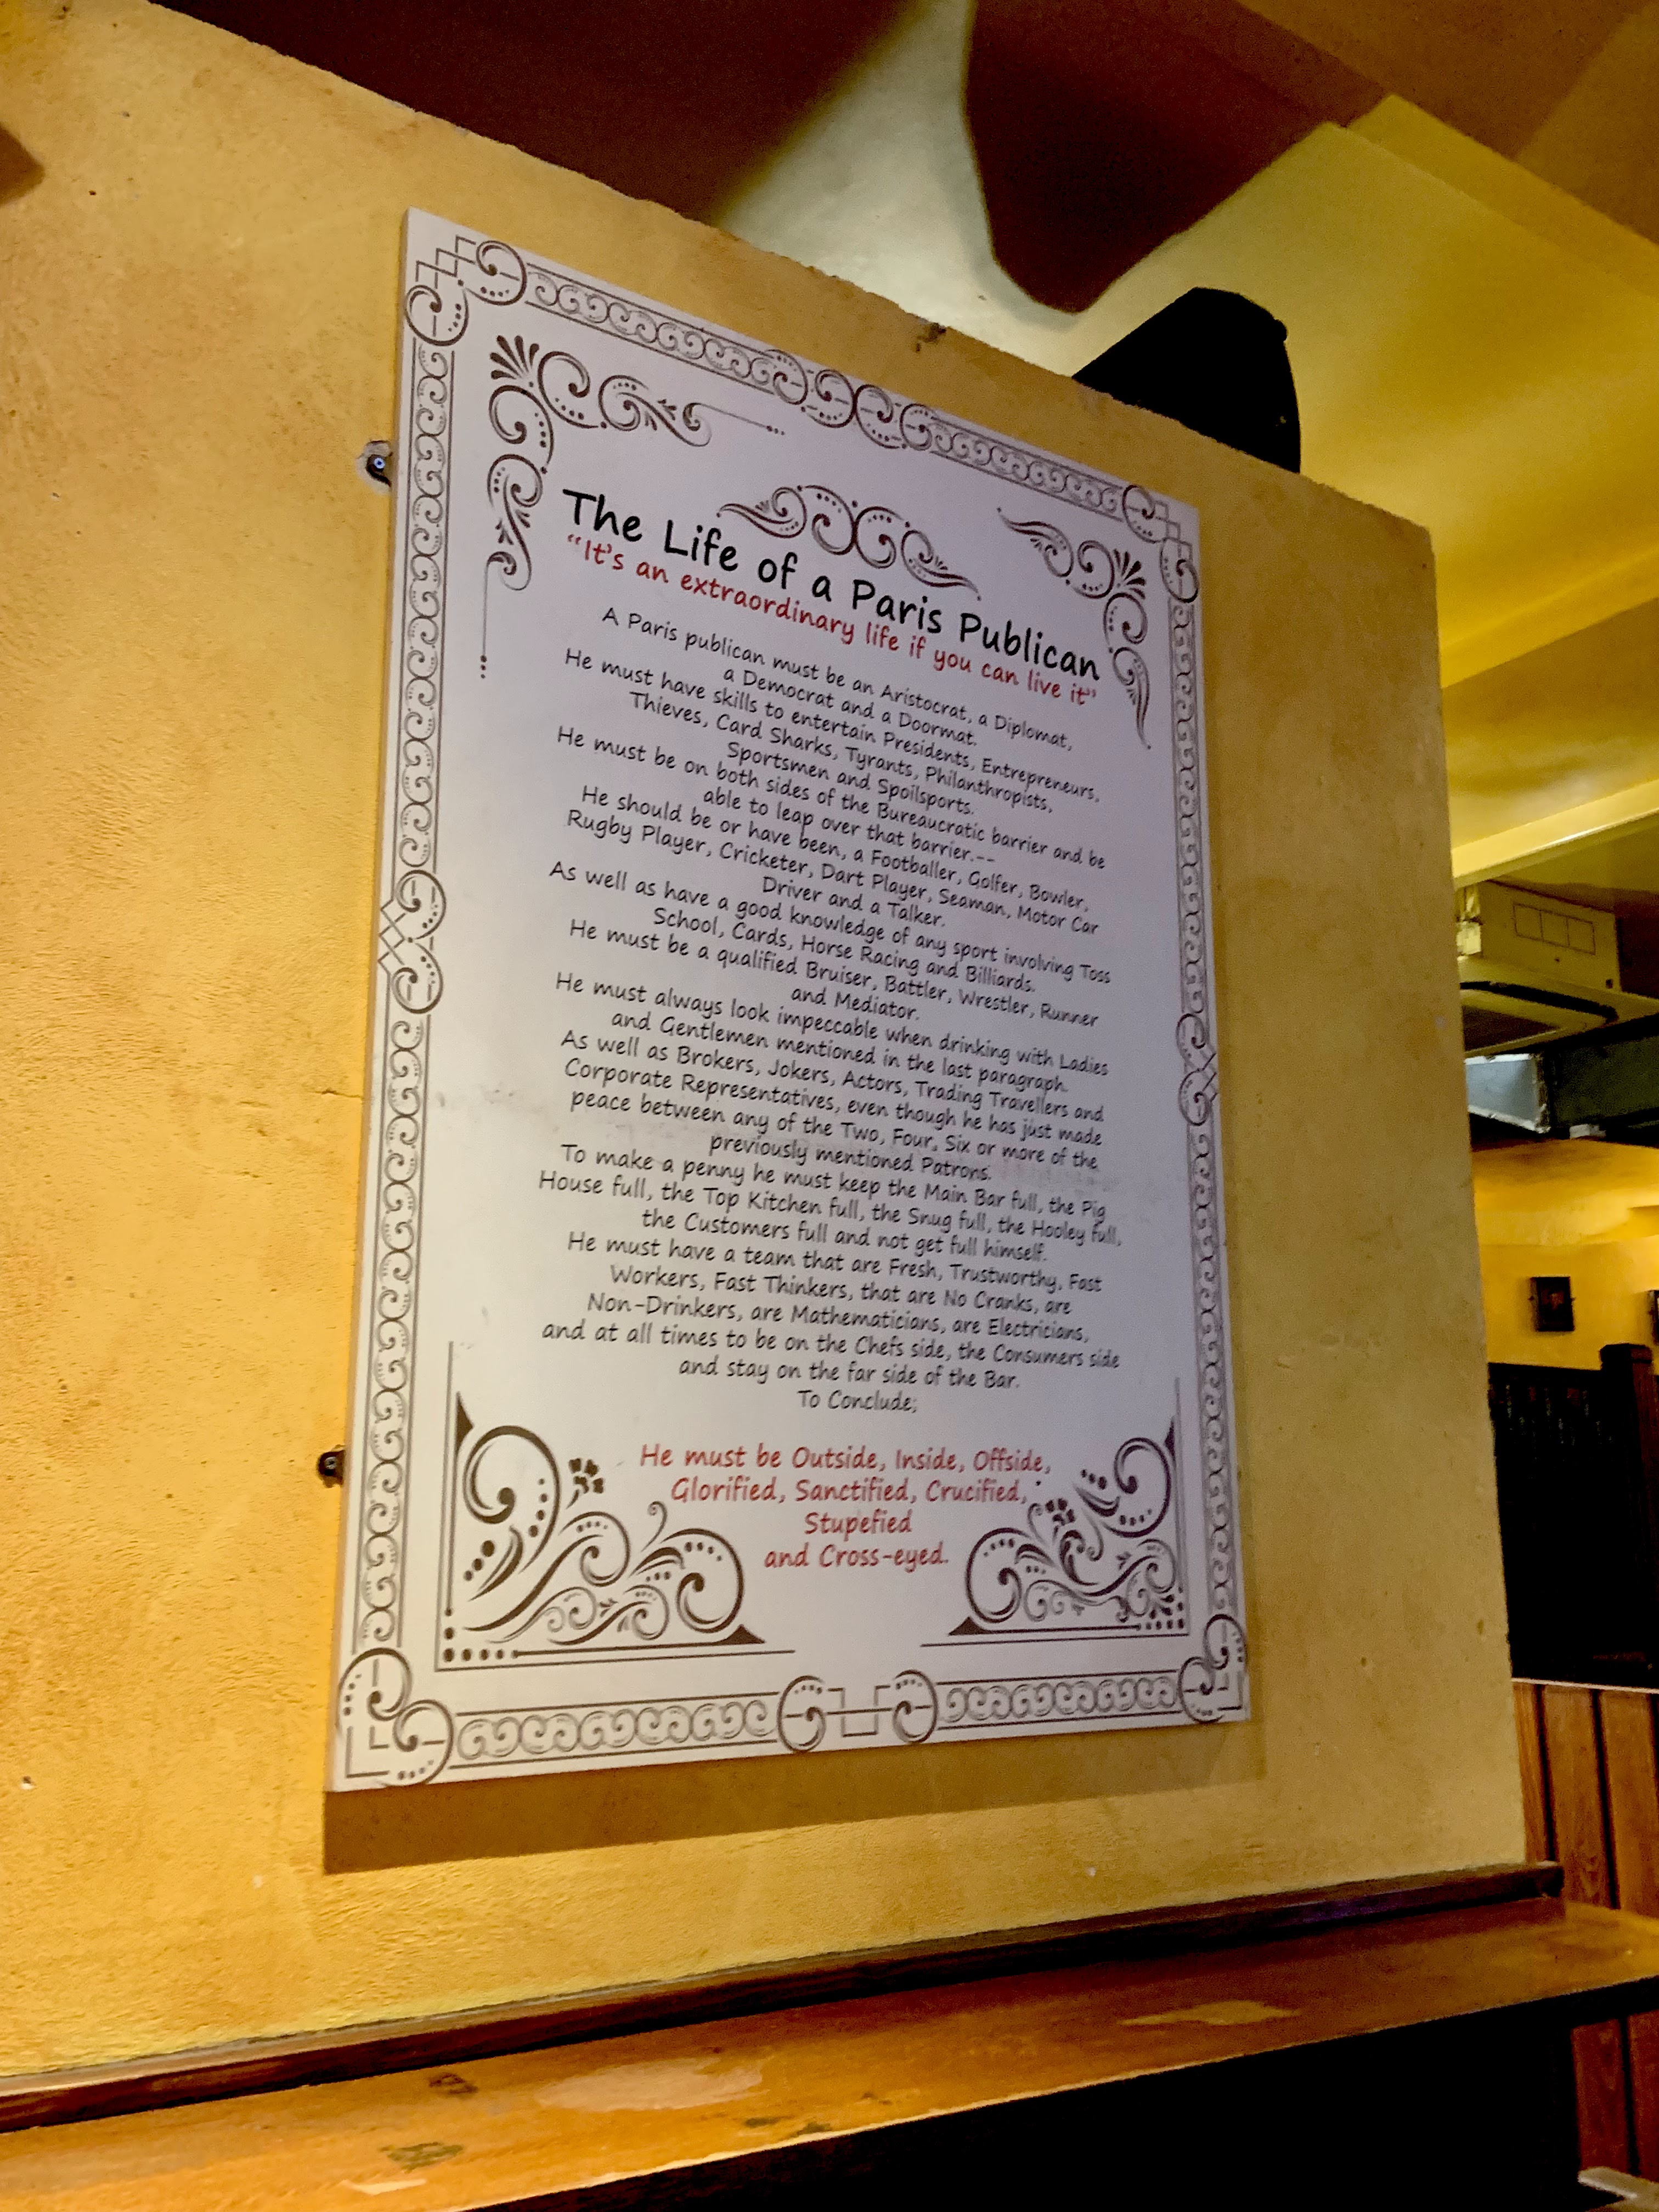 The Life of a Paris Publican
"It's an extraordinary life if you can live it"
A Paris publican must be an Aristocrat, a Diplomat,
a Democrat and a Doormat.
He must have skills to entertain Presidents, Entrepreneurs,
Thieves, Card Sharks, Tyrants, Philanthropists,
Sportsmen and Spoilsports.
He must be on both sides of the Bureaucratic barrier and be
able to leap over that barrier.--
He should be or have been, a Footballer, Golfer, Bowler,
Rugby Player, Cricketer, Dart Player, Seaman, Motor Car
Driver and a Talker.
As well as have a good knowledge of any sport involving Toss
School, Cards, Horse Racing and Billiards.
He must be a qualified Bruiser, Battler, Wrestler, Runner
and Mediator.
He must always look impeccable when drinking with Ladies
and Gentlemen mentioned in the last paragraph.
As well as Brokers, Jokers, Actors, Trading Travellers and
Corporate Representatives, even though he has just made
peace between any of the Two, Four, Six or more of the
previously mentioned Patrons.
To make a penny he must keep the Main Bar full, the Pig
House full, the Top Kitchen full, the Snug full, the Hooley full,
the Customers full and not get full himself.
He must have a team that are Fresh, Trustworthy, Fast
Workers, Fast Thinkers, that are No Cranks, are
Non-Drinkers, are Mathematicians, are Electricians,
and at all times to be on the Chefs side, the Consumers side
and stay on the far side of the Bar.
To Conclude;
He must be Outside, Inside, Offside,
Glorified, Sanctified, Crucified,
Stupefied
and Cross-eyed.